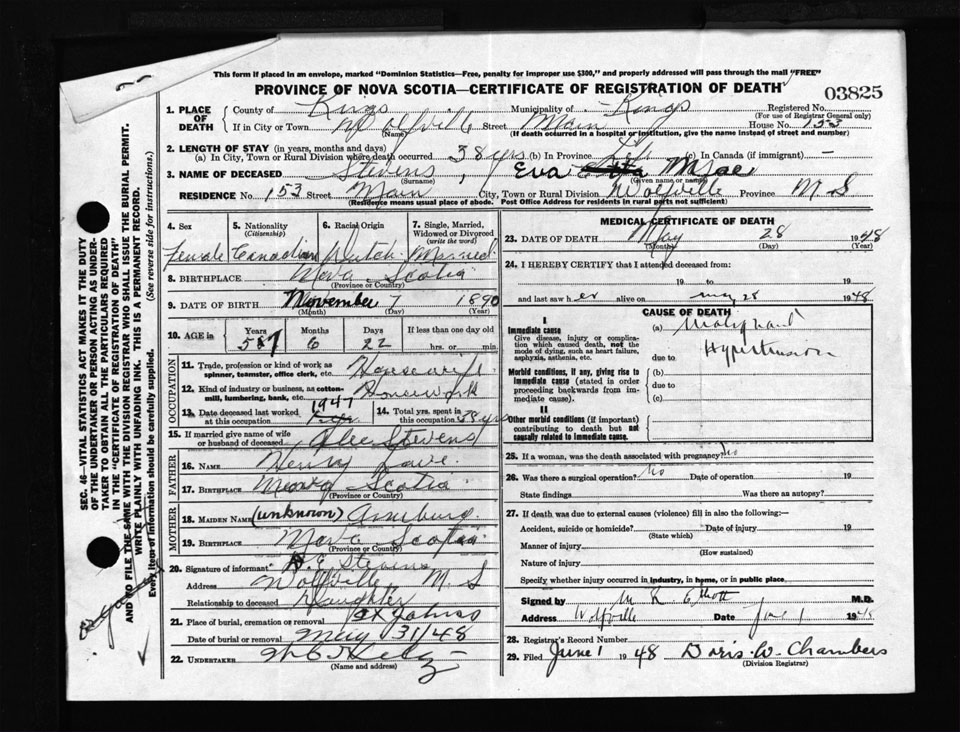 This form if placed in an envelope, marked "Dominion Statistics—Free, penalty for improper use $300," and properly addressed will pass through the mail "FREE"
PROVINCE OF NOVA SCOTIA—CERTIFICATE OF REGISTRATION OF DEATH
03825
1. PLACE OF DEATH County of Kings Municipality of Kings Registered No. (For use of Registrar General only)
If in City or Town Wolfville (Name) Street Main House No. 153
(If death occurred in a hospital or institution, give the name instead of street and number)
2. LENGTH OF STAY (in years, months and days)
(a) In City, Town or Rural Division where death occurred 38 yrs (b) In Province Life (c) In Canada (if immigrant) —
3. NAME OF DECEASED Stevens, Eva Mae
(Surname) (Given name or names)
RESIDENCE No. 153 Street Main City, Town or Rural Division Wolfville Province N S
(Residence means usual place of abode. Post Office Address for residents in rural parts not sufficient)
4. Sex 5. Nationality (Citizenship) 6. Racial Origin 7. Single, Married, Widowed or Divorced (write the word)
Female Canadian Dutch Married
8. BIRTHPLACE Nova Scotia
(Province or Country)
9. DATE OF BIRTH November 7 1890
(Month) (Day) (Year)
10. AGE in Years 57 Months 6 Days 22 If less than one day old hrs. or min.
OCCUPATION
11. Trade, profession or kind of work as spinner, teamster, office clerk, etc. Housewife
12. Kind of industry or business, as cotton-mill, lumbering, bank, etc. Housework
13. Date deceased last worked at this occupation 1947 14. Total yrs. spent in this occupation 38 yrs
15. If married give name of wife or husband of deceased Alec Stevens
FATHER
16. Name Henry
17. Birthplace Nova Scotia
(Province or Country)
MOTHER
18. MAIDEN NAME (unknown)
19. BIRTHPLACE Nova Scotia
(Province or Country)
20. Signature of informant E Stevens
Address Wolfville N. S
Relationship to deceased Daughter
21. Place of burial, cremation or removal
Date of burial or removal May 31/48
22. UNDERTAKER
(Name and address)
MEDICAL CERTIFICATE OF DEATH
23. DATE OF DEATH May 28 1948
(Month) (Day) (Year)
24. I HEREBY CERTIFY that I attended deceased from:
19 to 19
and last saw her alive on May 28 1948
CAUSE OF DEATH
I
Immediate cause
Give disease, injury or complication which caused death, not the mode of dying, such as heart failure, asphyxia, asthenia, etc.
(a) Malignant
Hypertension
due to
Morbid conditions, if any, giving rise to immediate cause (stated in order proceeding backwards from immediate cause).
(b)
due to
(c)
II
Other morbid conditions (if important) contributing to death but not causally related to immediate cause.
25. If a woman, was the death associated with pregnancy? No
26. Was there a surgical operation? No Date of operation 19
State findings Was there an autopsy?
27. If death was due to external causes (violence) fill in also the following:—
Accident, suicide or homicide? Date of injury 19
(State which)
Manner of injury
(How sustained)
Nature of injury
Specify whether injury occurred in industry, in home, or in public place.
Signed by M. R. Elliott M.D.
Address Wolfville Date June 1 1948
28. Registrar's Record Number
29. Filed June 1 1948 Doris W. Chambers
(Division Registrar)
SEC. 46—VITAL STATISTICS ACT MAKES IT THE DUTY
OF THE UNDERTAKER OR PERSON ACTING AS UNDER-
TAKER TO OBTAIN ALL THE PARTICULARS REQUIRED
IN THE "CERTIFICATE OF REGISTRATION OF DEATH"
AND TO FILE THE SAME WITH THE DIVISION REGISTRAR WHO SHALL ISSUE THE BURIAL PERMIT.
WRITE PLAINLY WITH UNFADING INK. THIS IS A PERMANENT RECORD.
Every item of information should be carefully supplied. (See reverse side for instructions.)